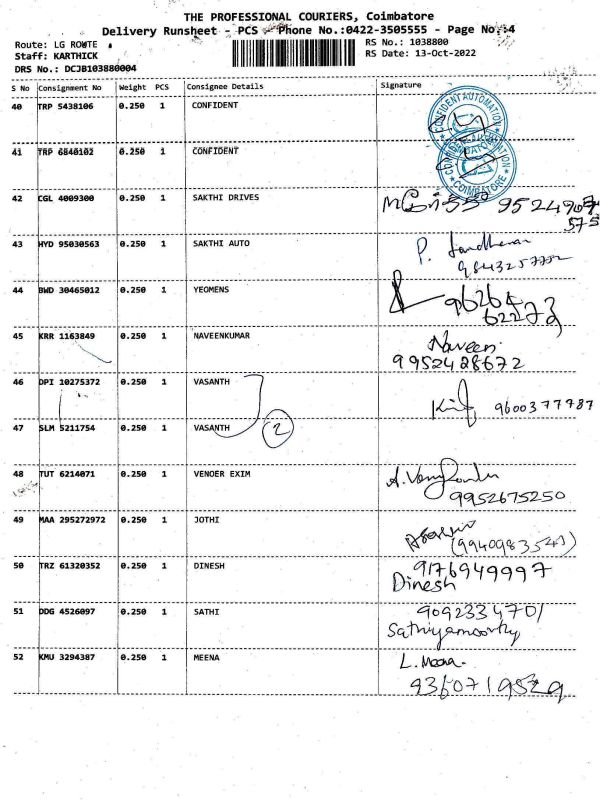 THE PROFESSIONAL COURIERS, Coimbatore
Delivery Runsheet - PCS - Phone No.:0422-3505555 - Page No.:4
Route: LG ROUTE
RS No.: 1038800
Staff: KARTHICK
RS Date: 13-Oct-2022
DRS No.: DCJB103880004
S No Consignment No Weight PCS Consignee Details Signature
40 TRP 5438106 0.250 1 CONFIDENT
CONFIDENT AUTOMATION
41 TRP 6840102 0.250 1 CONFIDENT
COIMBATORE
42 CGL 4009300 0.250 1 SAKTHI DRIVES
43 HYD 95030563 0.250 1 SAKTHI AUTO
9843257772
44 BWD 30465012 0.250 1 YEOMENS
45 KRR 1163849 0.250 1 NAVEENKUMAR Naveen
9952428672
46 DPI 10275372 0.250 1 VASANTH
9600377787
47 SLM 5211754 0.250 1 VASANTH 2
48 TUT 6214071 0.250 1 VENOER EXIM
9952675250
49 MAA 295272972 0.250 1 JOTHI
50 TRZ 61320352 0.250 1 DINESH 9176949997
Dinesh
51 DDG 4526097 0.250 1 SATHI 9092334701
Sathiyamoorthy
52 KMU 3294387 0.250 1 MEENA L. Meena
9360719529